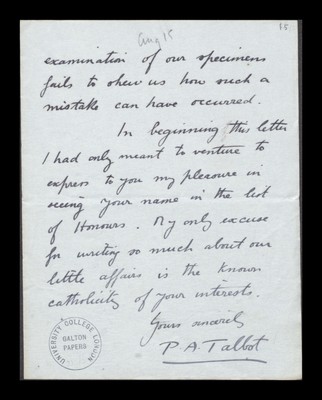 Aug 15
15
examination of our specimens
fails to shew us how such a
mistake can have occurred.
In beginning this letter
I had only meant to venture to
express to you my pleasure in
seeing your name in the list
of Honours. My only excuse
for writing so much about our
little affairs is the known
catholicity of your interests.
Yours sincerely
P.A. Talbot
UNIVERSITY COLLEGE LONDON
GALTON
PAPERS